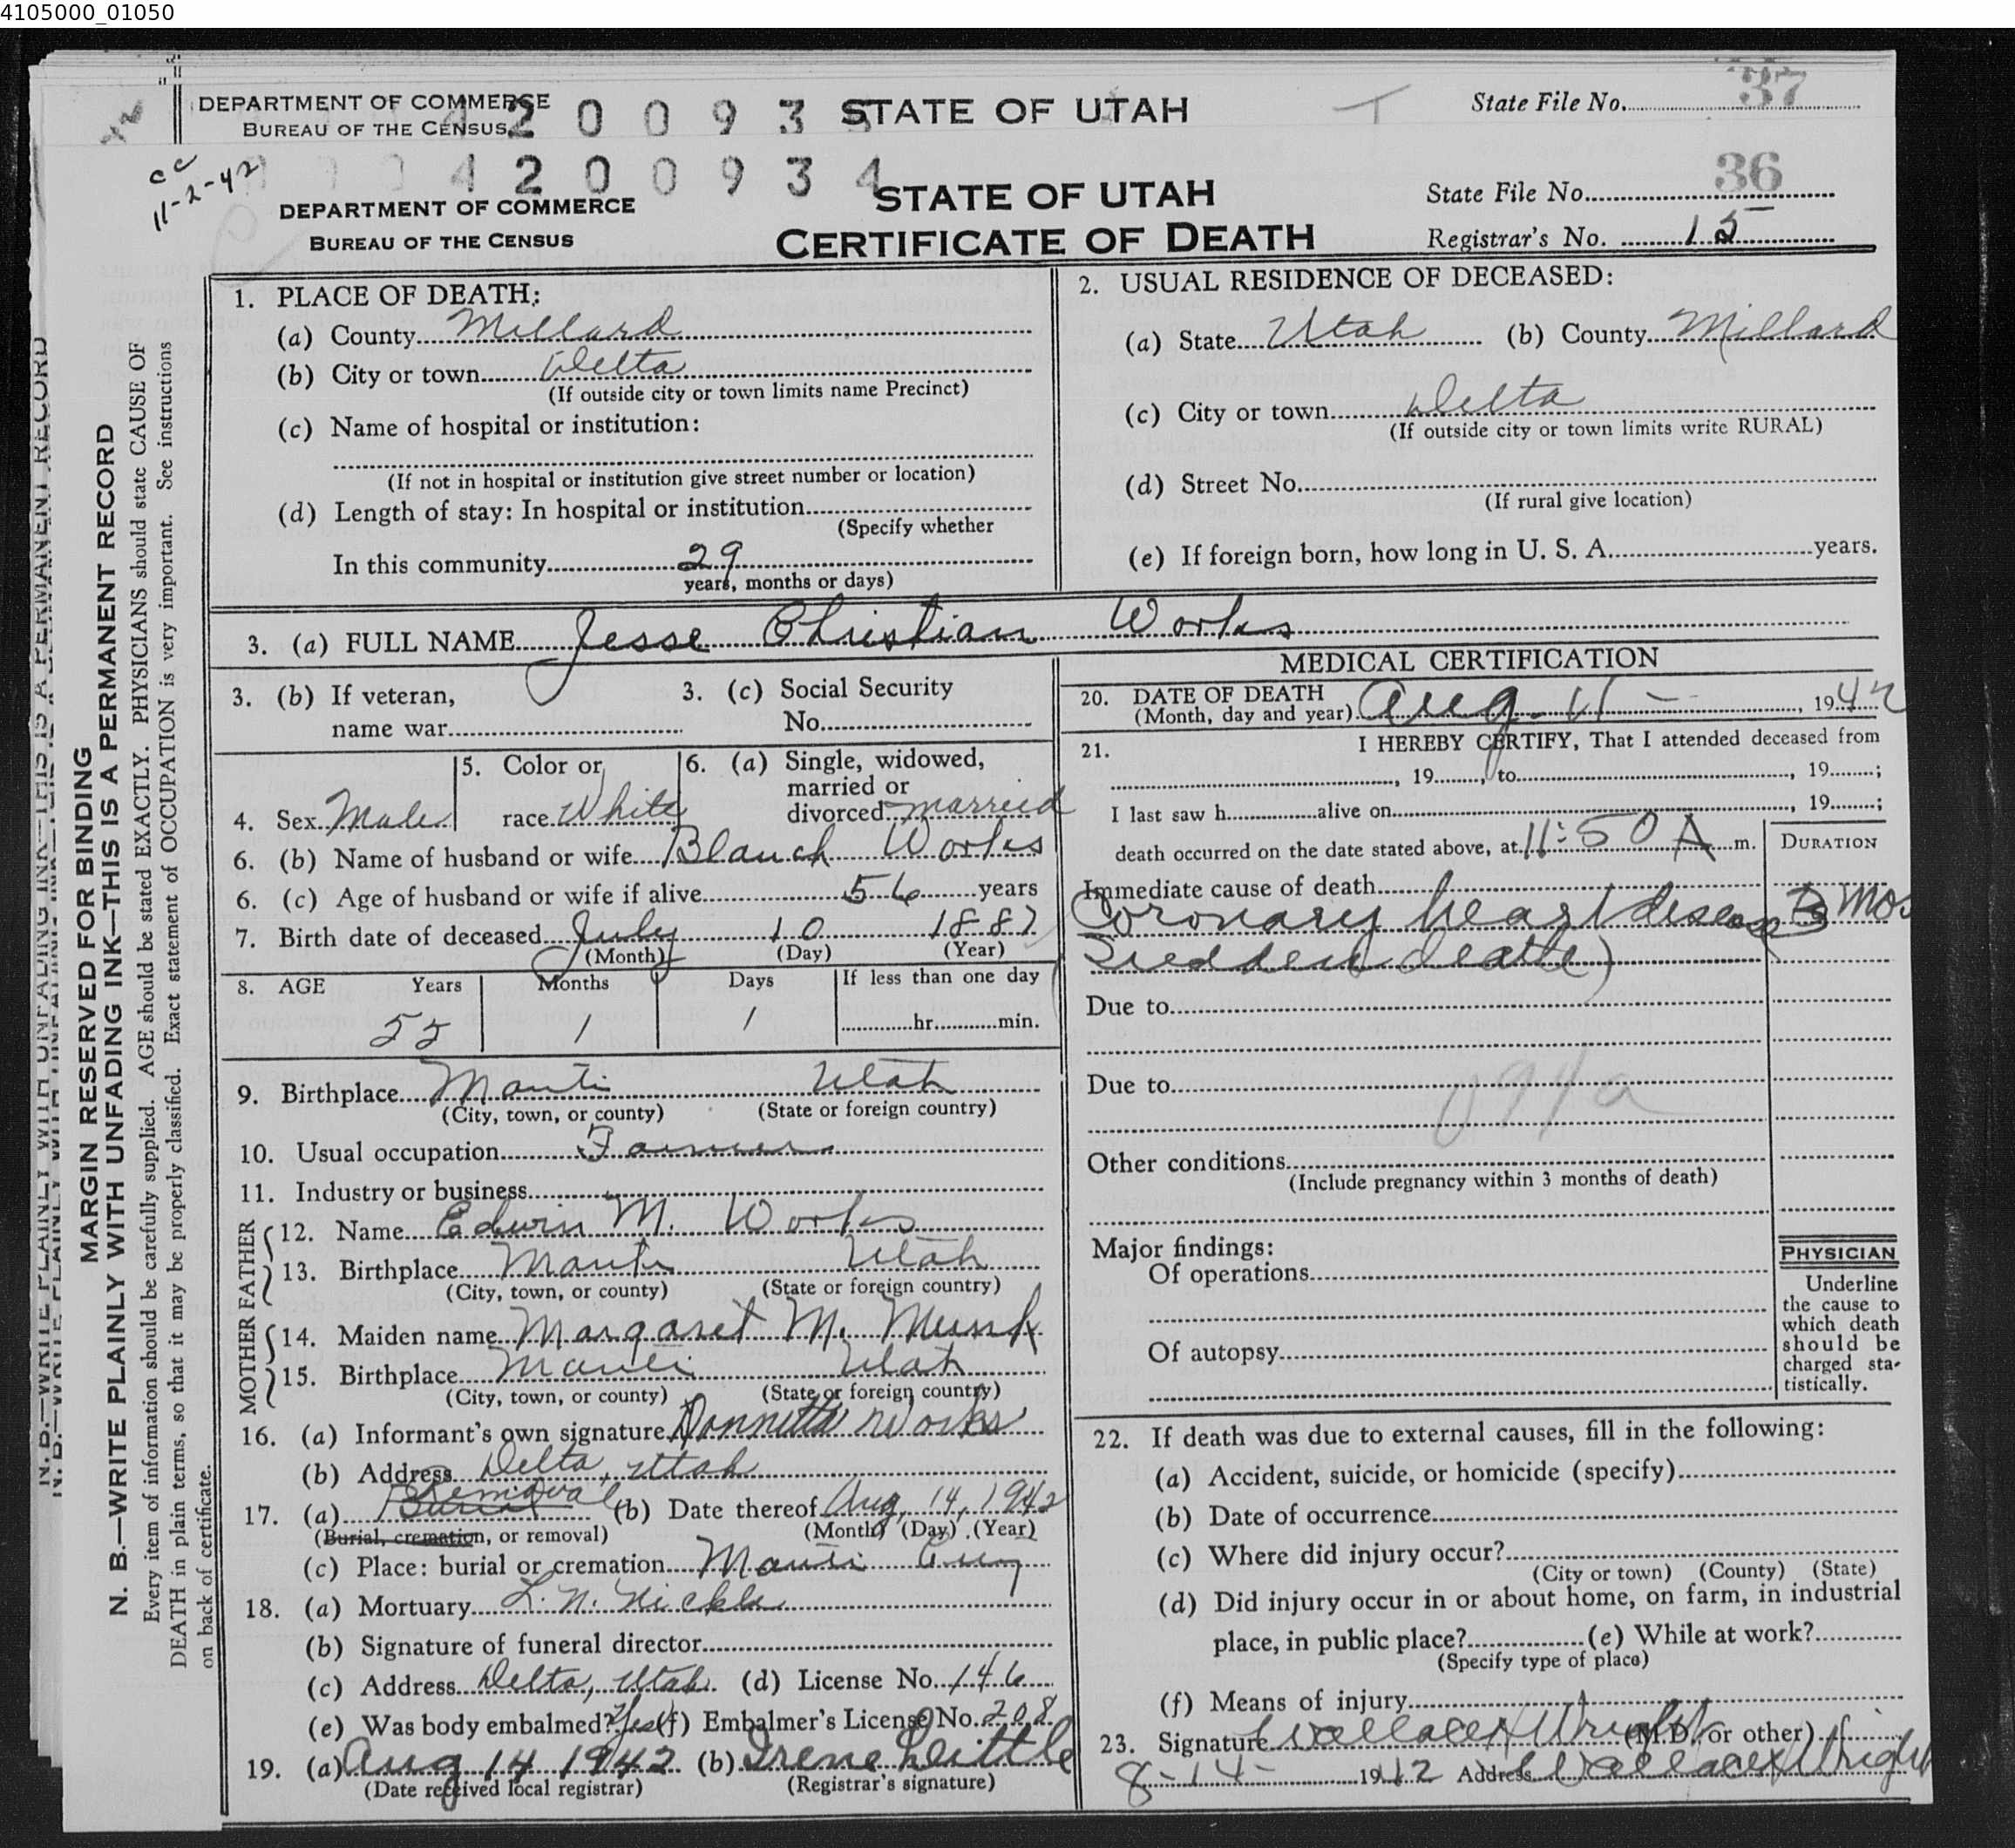 4105000_01050
DEPARTMENT OF COMMERCE
BUREAU OF THE CENSUS
2 0 0 9 3 5
STATE OF UTAH
State File No. 37
cc
11-2-42
4 2 0 0 9 3 4
DEPARTMENT OF COMMERCE
BUREAU OF THE CENSUS
STATE OF UTAH
CERTIFICATE OF DEATH
State File No. 36
Registrar's No. 15
N. B.—WRITE PLAINLY WITH UNFADING INK—THIS IS A PERMANENT RECORD
MARGIN RESERVED FOR BINDING
N. B.—WRITE PLAINLY WITH UNFADING INK—THIS IS A PERMANENT RECORD
Every item of information should be carefully supplied. AGE should be stated EXACTLY. PHYSICIANS should state CAUSE OF
DEATH in plain terms, so that it may be properly classified. Exact statement of OCCUPATION is very important. See instructions
on back of certificate.
1. PLACE OF DEATH:
(a) County Millard
(b) City or town Delta
(If outside city or town limits name Precinct)
(c) Name of hospital or institution:
(If not in hospital or institution give street number or location)
(d) Length of stay: In hospital or institution
(Specify whether
In this community 29
years, months or days)
2. USUAL RESIDENCE OF DECEASED:
(a) State Utah (b) County Millard
(c) City or town Delta
(If outside city or town limits write RURAL)
(d) Street No.
(If rural give location)
(e) If foreign born, how long in U. S. A. years.
3. (a) FULL NAME Jesse Christian Works
3. (b) If veteran,
name war
3. (c) Social Security
No.
4. Sex Male
5. Color or
race White
6. (a) Single, widowed,
married or
divorced married
6. (b) Name of husband or wife Blanch Works
6. (c) Age of husband or wife if alive 56 years
7. Birth date of deceased July 10 1887
(Month) (Day) (Year)
8. AGE Years Months Days If less than one day
55 1 1 hr. min.
9. Birthplace Manti Utah
(City, town, or county) (State or foreign country)
10. Usual occupation Farmer
11. Industry or business
FATHER
12. Name Edwin M. Works
13. Birthplace Manti Utah
(City, town, or county) (State or foreign country)
MOTHER
14. Maiden name Margaret M. Munk
15. Birthplace Manti Utah
(City, town, or county) (State or foreign country)
16. (a) Informant's own signature Donnetta Works
(b) Address Delta, Utah
17. (a) Burial Removal (b) Date thereof Aug, 14, 1942
(Burial, cremation, or removal) (Month) (Day) (Year)
(c) Place: burial or cremation Manti Cem
18. (a) Mortuary L. N. Nickle
(b) Signature of funeral director
(c) Address Delta, Utah. (d) License No. 146
(e) Was body embalmed? Yes (f) Embalmer's License No. 208
19. (a) Aug 14 1942 (b) Irene Little
(Date received local registrar) (Registrar's signature)
MEDICAL CERTIFICATION
20. DATE OF DEATH
(Month, day and year) Aug. 11 - , 1942
21. I HEREBY CERTIFY, That I attended deceased from
, 19 , to , 19 ;
I last saw h alive on , 19 ;
death occurred on the date stated above, at 11:50 A m.
DURATION
Immediate cause of death
Coronary heart disease 3 Mos
Sudden death)
Due to
Due to
094a
Other conditions
(Include pregnancy within 3 months of death)
Major findings:
Of operations
Of autopsy
PHYSICIAN
Underline
the cause to
which death
should be
charged sta-
tistically.
22. If death was due to external causes, fill in the following:
(a) Accident, suicide, or homicide (specify)
(b) Date of occurrence
(c) Where did injury occur?
(City or town) (County) (State)
(d) Did injury occur in or about home, on farm, in industrial
place, in public place? (e) While at work?
(Specify type of place)
(f) Means of injury
23. Signature Wallace Wright (M.D. or other)
8-14- 1942 Address Wallace Wright